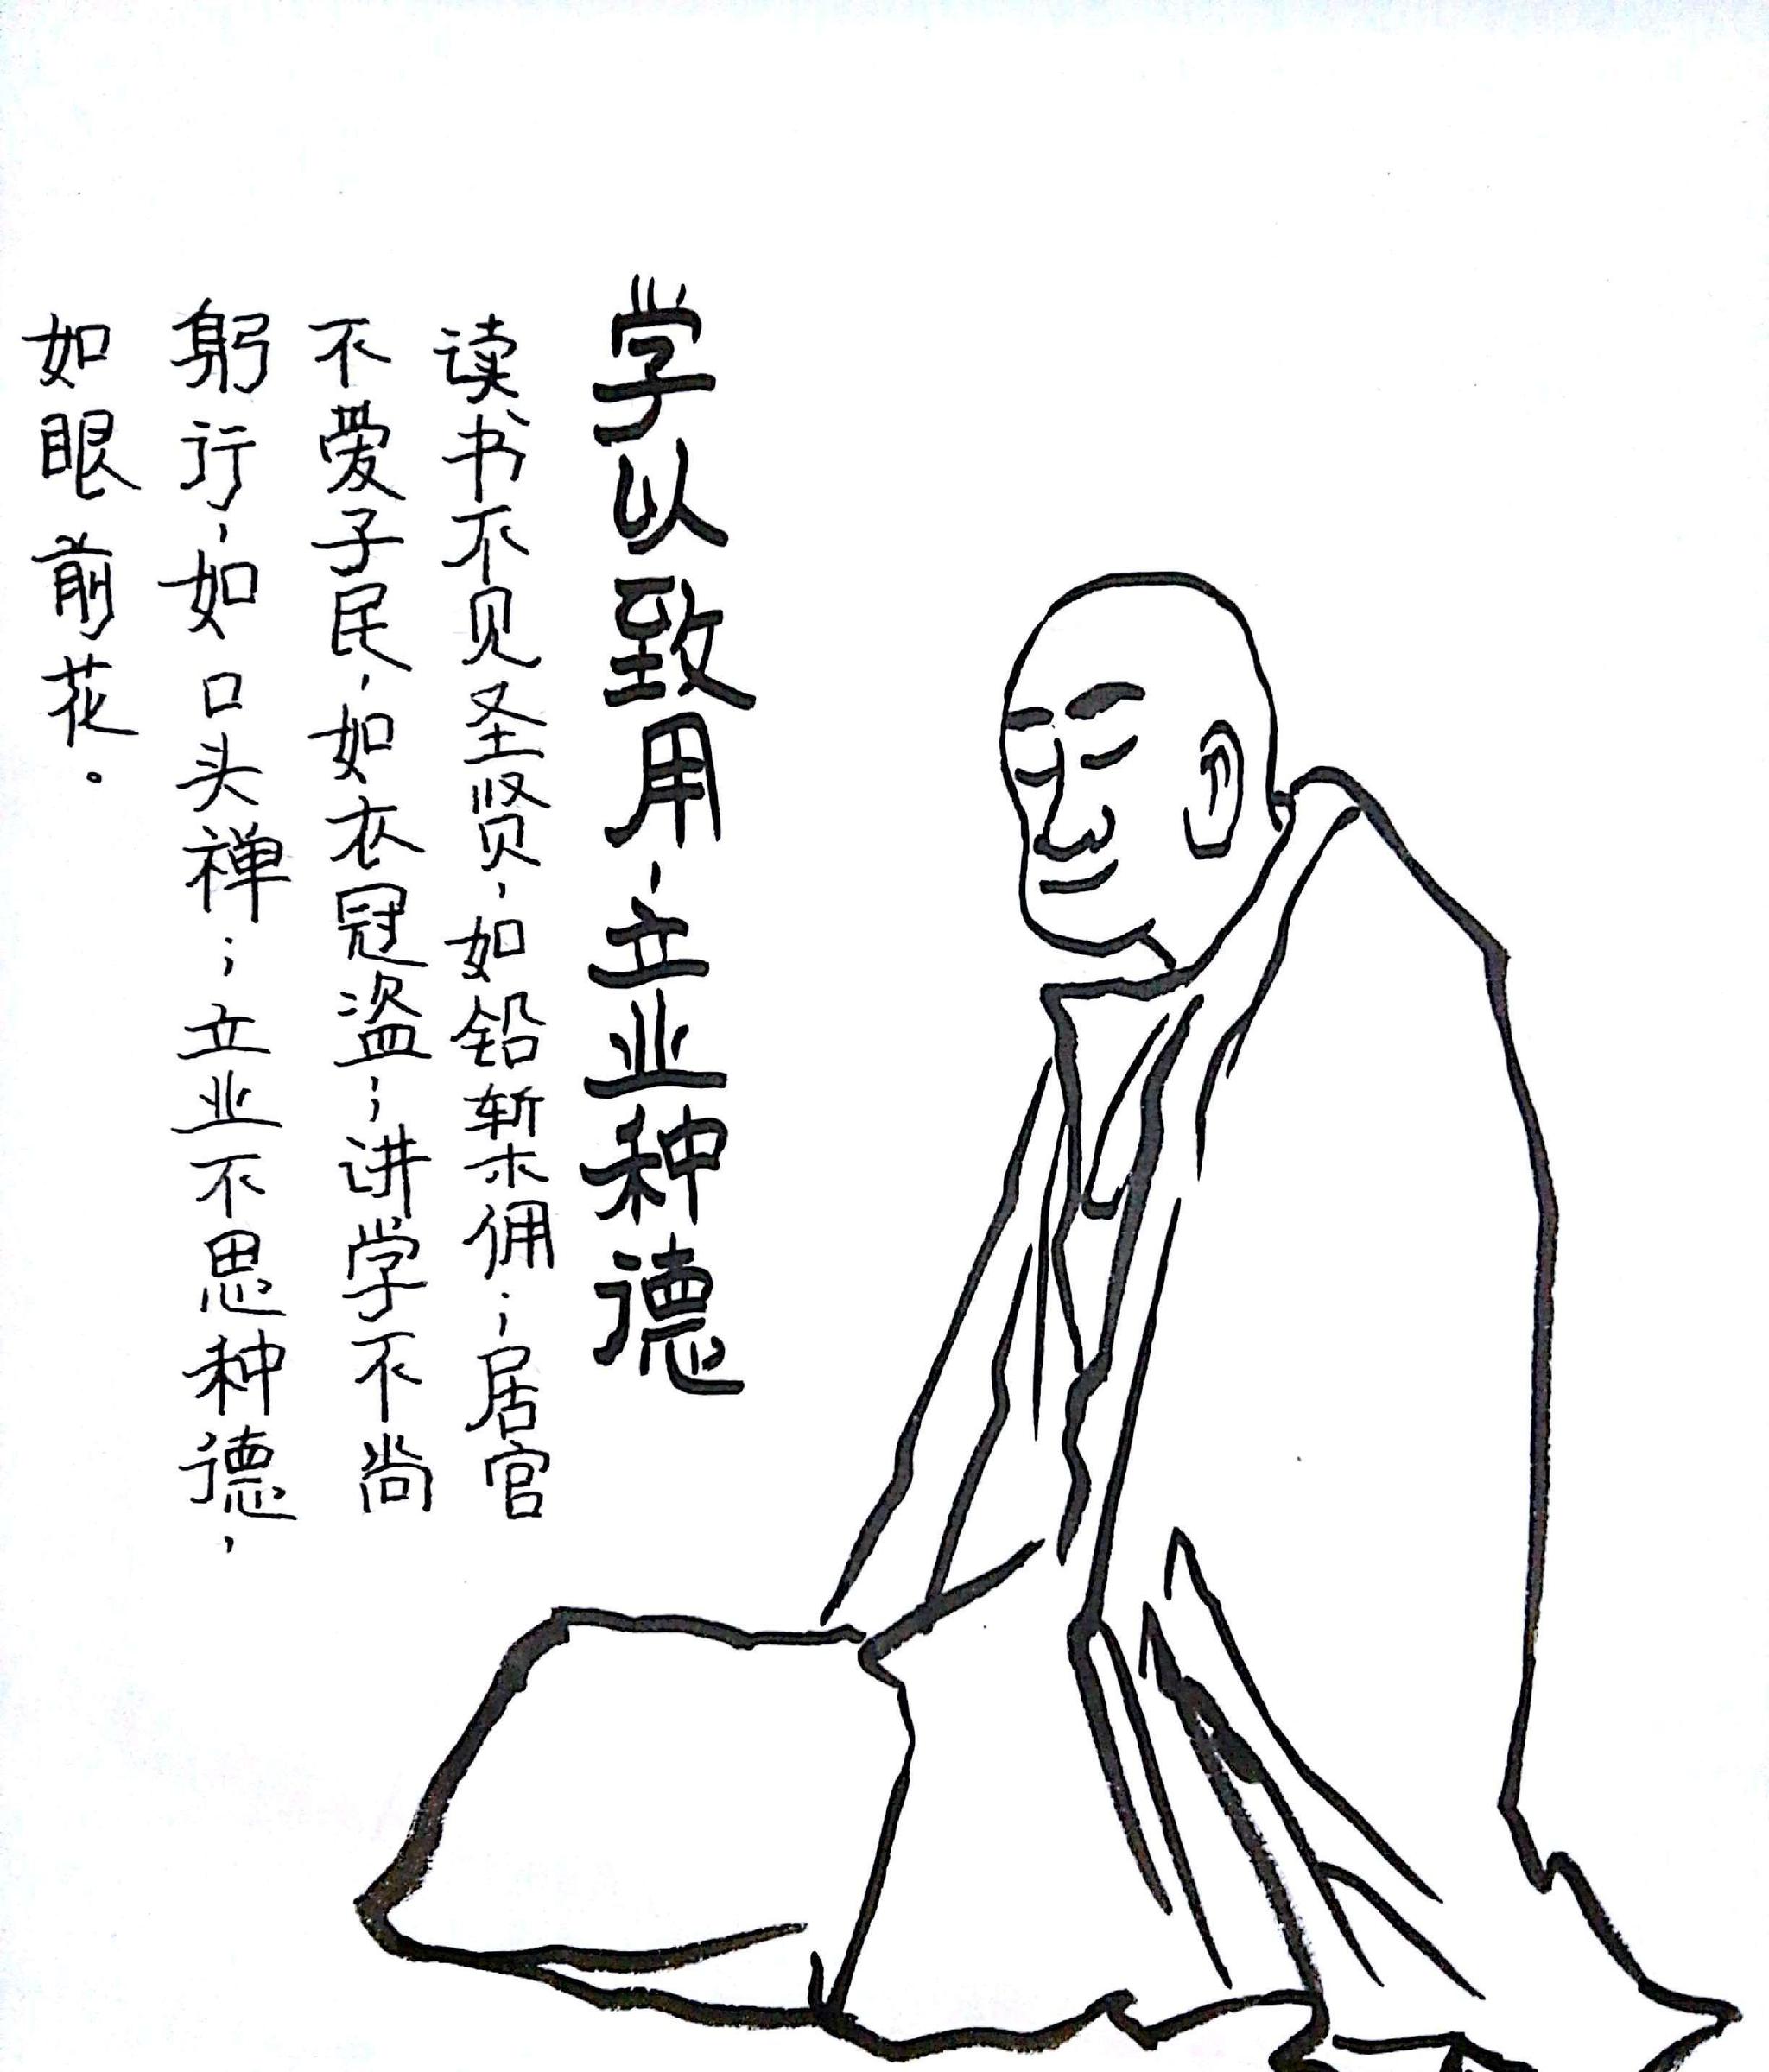 学以致用，立业种德
读书不见圣贤，如铅椠佣；居官
不爱子民，如衣冠盗；讲学不尚
躬行，如口头禅；立业不思种德，
如眼前花。